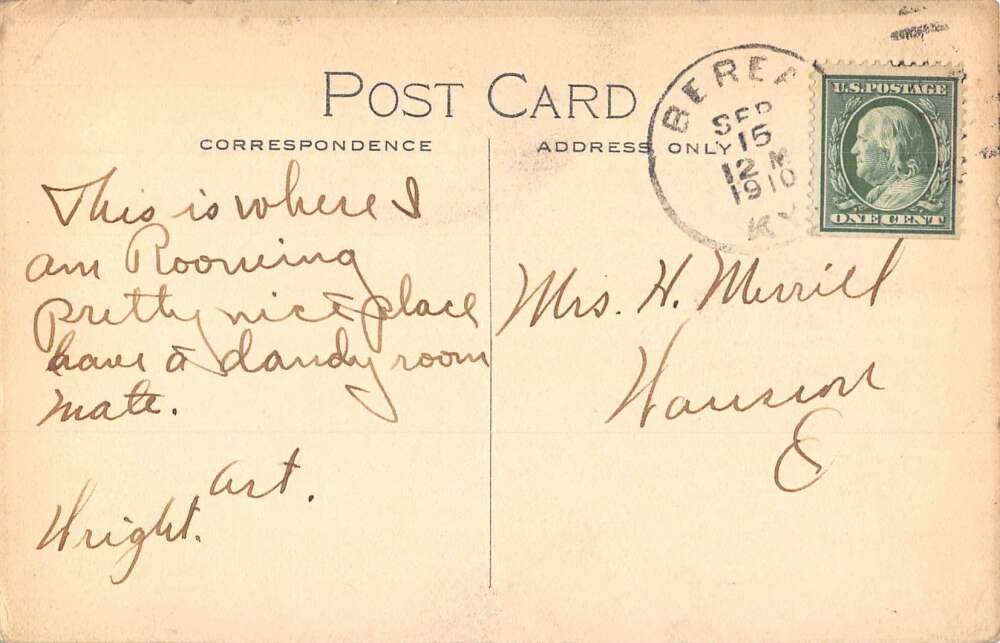 POST CARD
CORRESPONDENCE
ADDRESS ONLY
BEREA
SEP
15
12 M
1910
KY
U.S. POSTAGE
ONE CENT
This is where I
am Rooming
pretty nice place
have a dandy room
mate.
Art.
Wright.
Mrs. H. Merrill
O